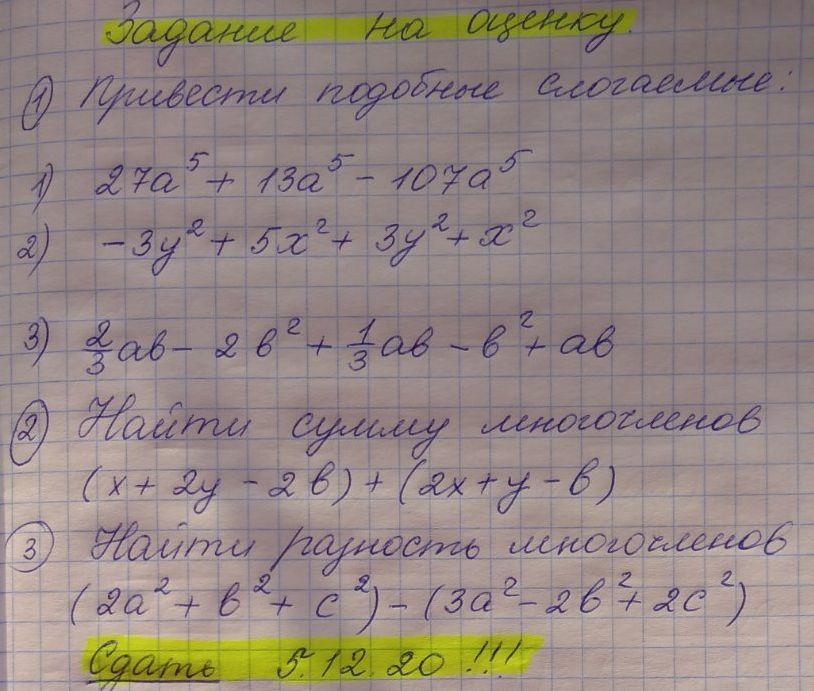 Задание на оценку.
① Привести подобные слогаемые:
1) 27a⁵ + 13a⁵ - 107a⁵
2) -3y² + 5x² + 3y² + x²
3) 2/3 ab - 2b² + 1/3 ab - b² + ab
② Найти сумму многочленов
(x + 2y - 2b) + (2x + y - b)
③ Найти разность многочленов
(2a² + b² + c²) - (3a² - 2b² + 2c²)
Сдать 5.12.20 !!!